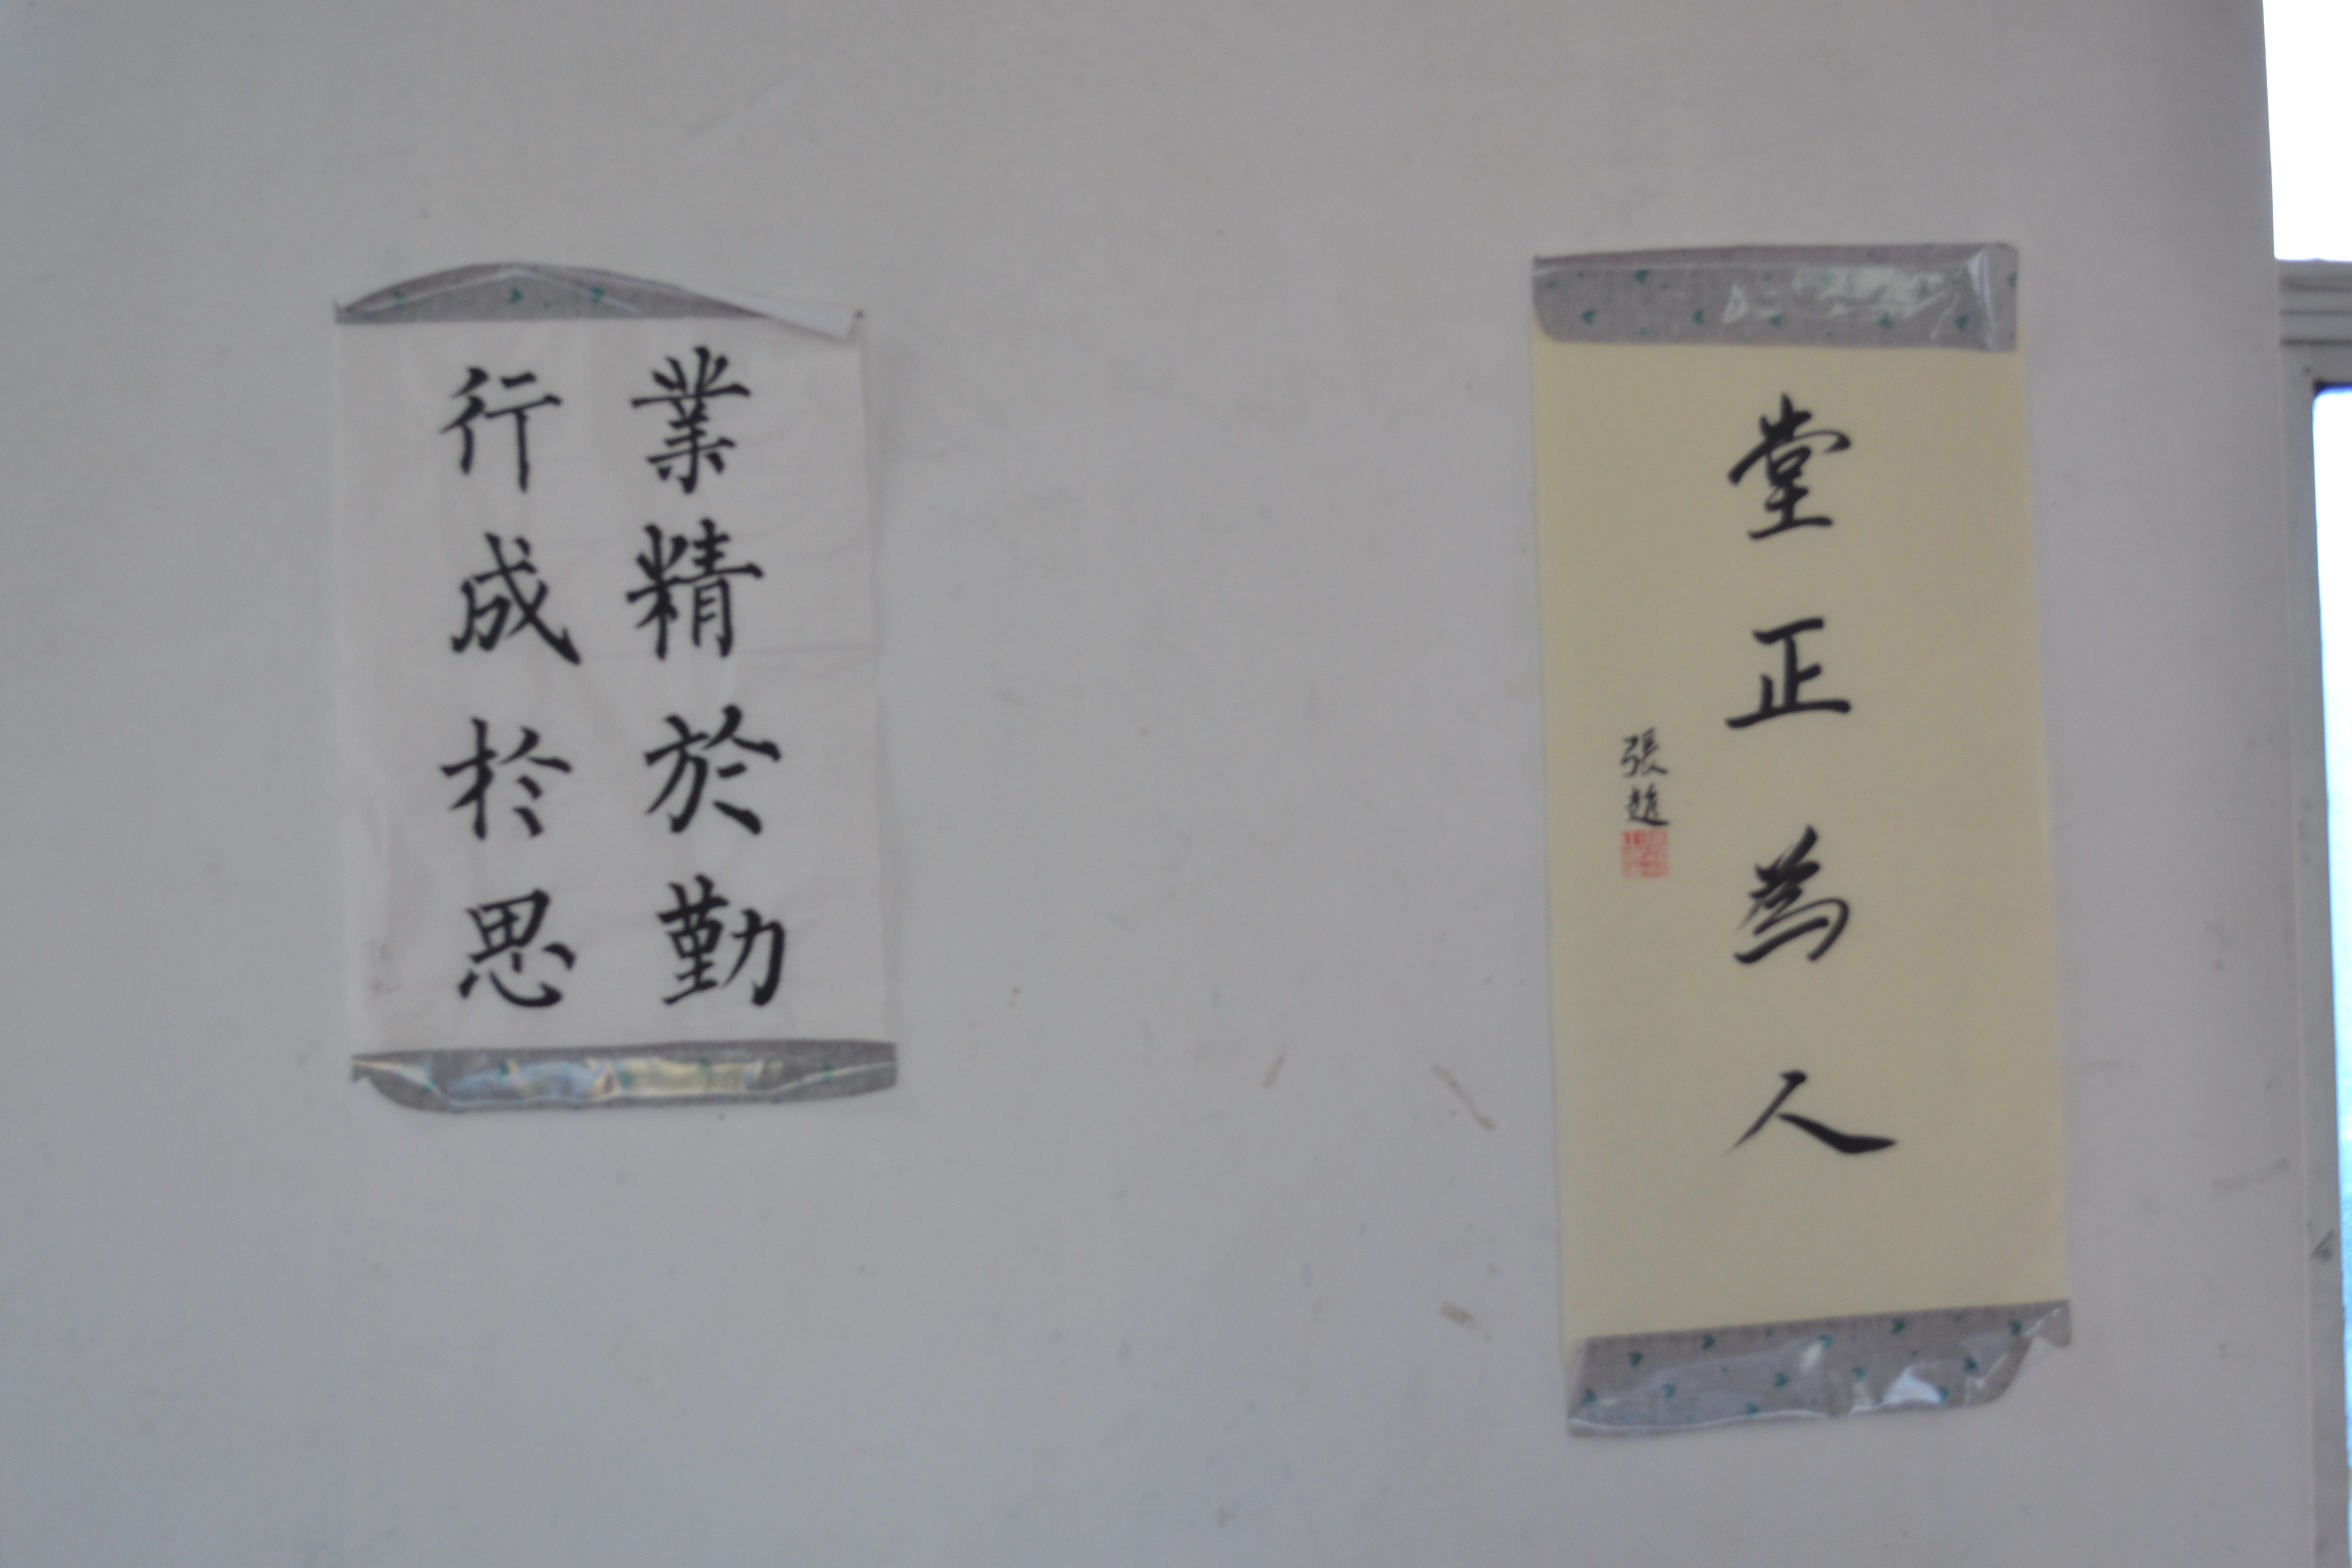 業精於勤
行成於思
堂正為人
張趙